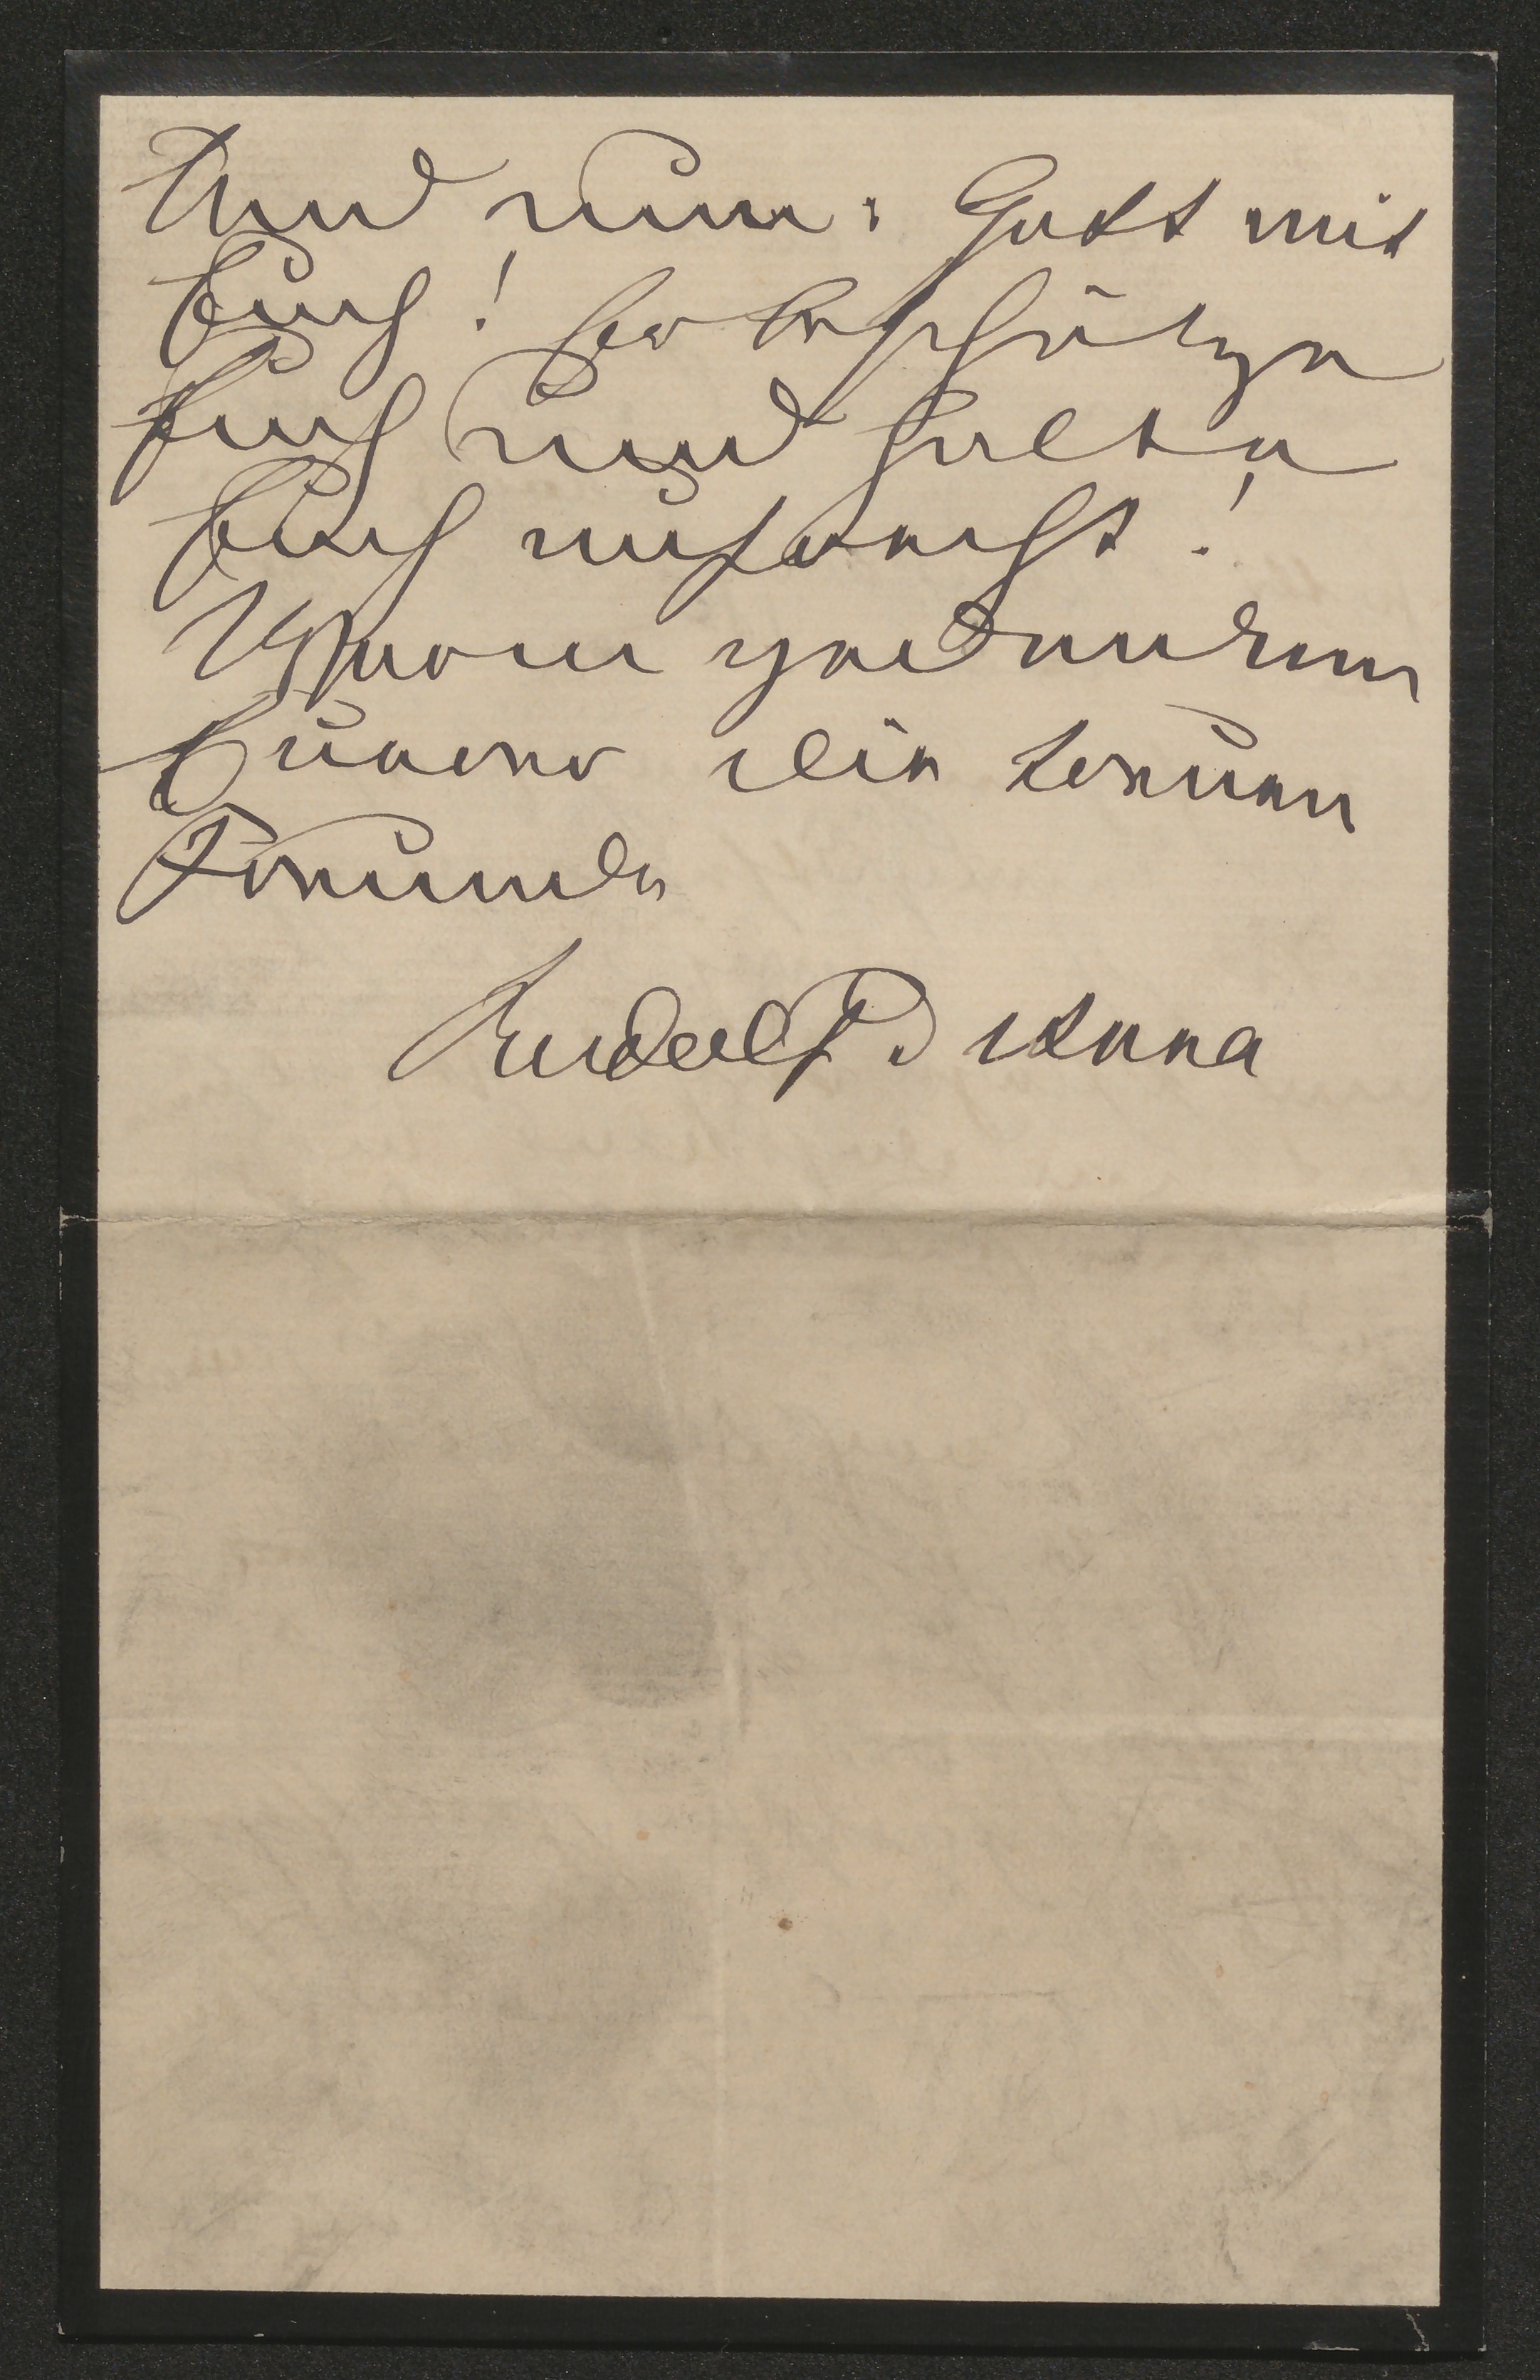 Und nun: Gott mit
Euch! Er beschütze
Euch und halte
Euch aufrecht!
Warm gedenken
Eurer die treuen
Freunde
Rudolf